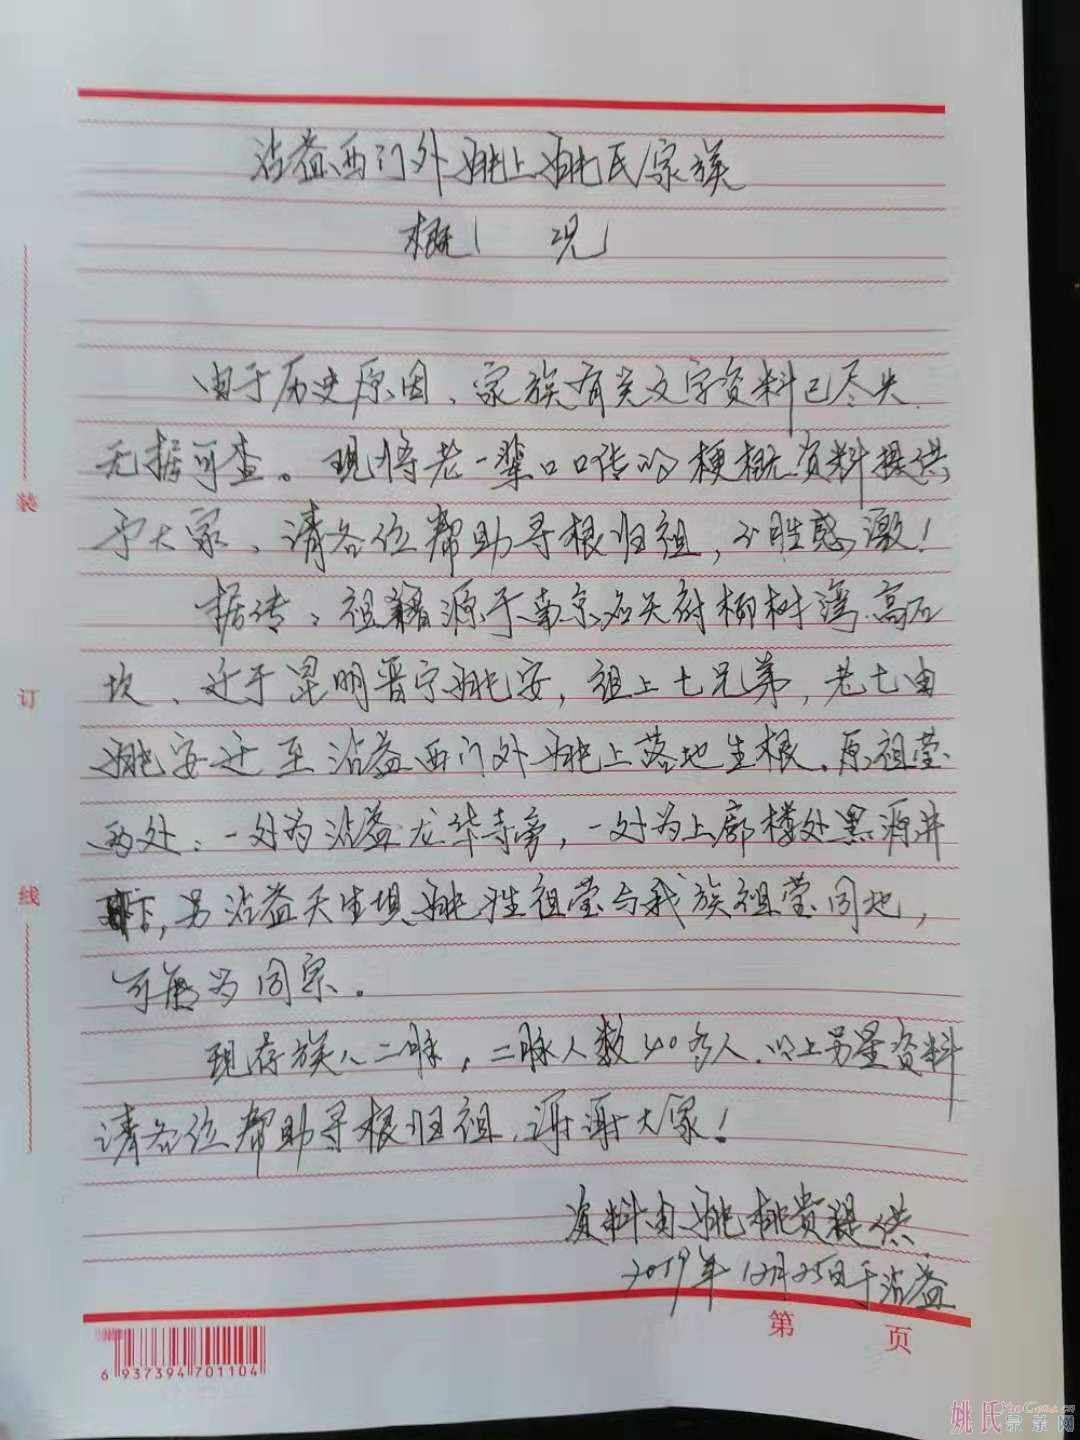 沾益西门外姚上姚氏家族
概况
由于历史原因、家族有关文字资料已尽失
无据可查。现将老一辈口口传的梗概资料提供
予大家、请各位帮助寻根归祖，不胜感激！
据传：祖籍源于南京 柳树湾高石
坎、迁于昆明晋宁姚安，祖上七兄弟，老七由
姚安迁至沾益西门外姚上落地生根。原祖茔
两处：一处为沾益龙华寺旁，一处为上廊楼处黑源井
下，另沾益天生坝姚姓祖茔与我族祖茔同地，
可能为同宗。
现存族人二脉，二脉人数40多人。以上另星资料
请各位帮助寻根归祖，谢谢大家！
资料由姚 贵提供
2019年12月25日于沾益
装
订
线
第 页
6 937394 701104
姚氏宗亲网
YaoGens.cn